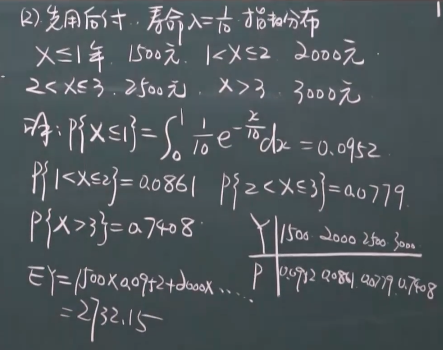 (2) 先用后付. 寿命 λ=1/10 指数分布
X≤1年 1500元. 1<X≤2 2000元
2<X≤3. 2500元. X>3. 3000元
P{X≤1}=∫₀¹ 1/10 e^(-x/10) dx=0.0952
P{1<X≤2}=0.0861 P{2<X≤3}=0.0779.
P{X>3}=0.7408.
Y 1500 2000 2500 3000
P 0.0952 0.0861 0.0779 0.7408
EY=1500×0.0952+2000×.....
=2732.15